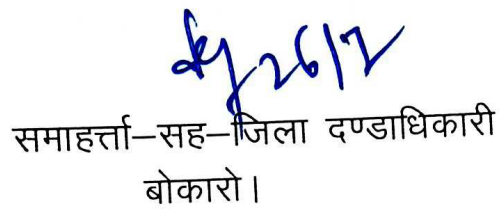 26/7
समाहर्त्ता–सह–जिला दण्डाधिकारी
बोकारो।